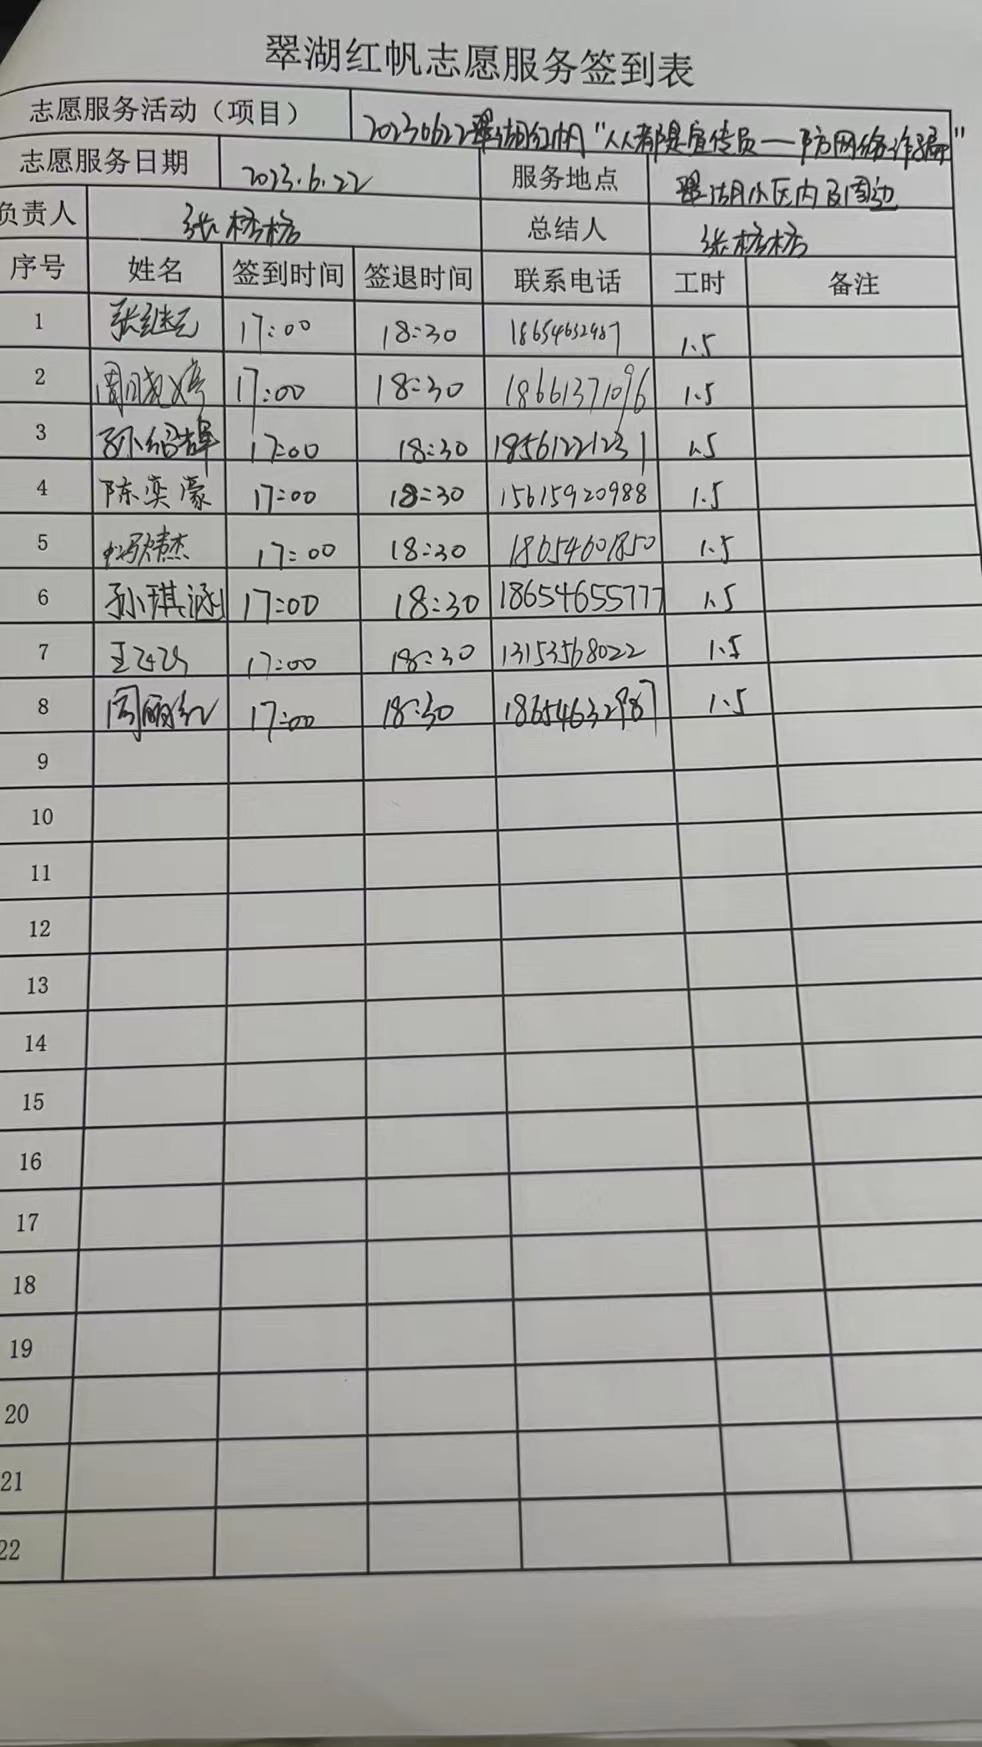 翠湖红帆志愿服务签到表
志愿服务活动（项目） 20230622翠湖红帆“人人都是宣传员——防网络诈骗”
志愿服务日期 2023.6.22 服务地点 翠湖小区内及周边
负责人 张 总结人 张
序号 姓名 签到时间 签退时间 联系电话 工时 备注
1 张继元 17:00 18:30 18654632987 1.5
2 周 17:00 18:30 18661371096 1.5
3 孙绍 17:00 18:30 18561221231 1.5
4 陈奕濠 17:00 18:30 15615920988 1.5
5 杰 17:00 18:30 18654601850 1.5
6 孙琪涵 17:00 18:30 18654655777 1.5
7 王 17:00 18:30 13153568022 1.5
8 周丽红 17:00 18:30 18654632987 1.5
9
10
11
12
13
14
15
16
17
18
19
20
21
22